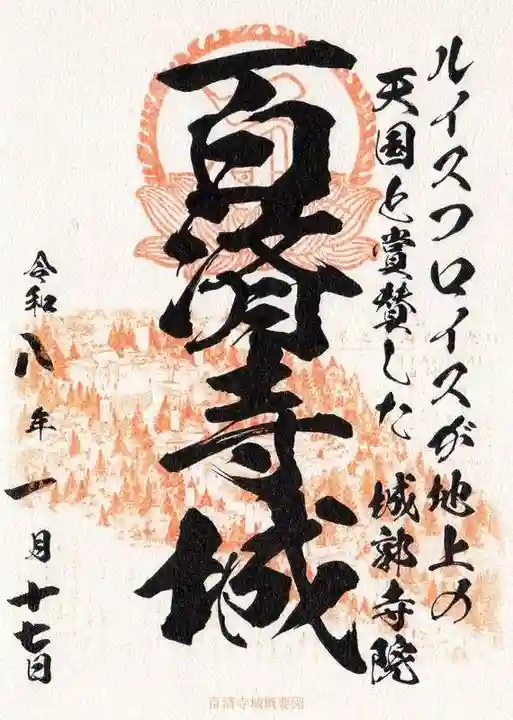 ルイスフロイスが地上の
天国と賞賛した 城郭寺院
百済寺城
令和八年一月十七日
百済寺城概要図